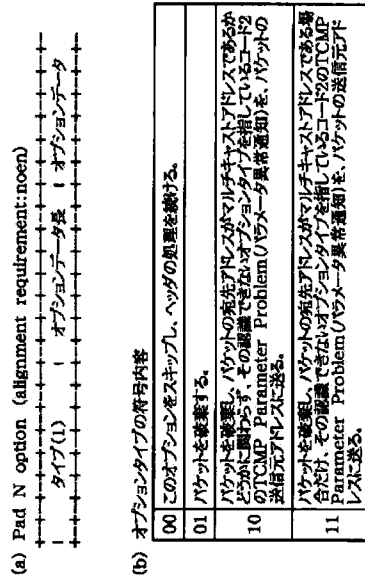 (a) Pad N option (alignment requirement:noen)
+-+-+-+-+-+-+-+-+-+-+-+-+-+-+-+-+
| タイプ(1) | オプションデータ長 | オプションデータ
+-+-+-+-+-+-+-+-+-+-+-+-+-+-+-+-+
(b) オプションタイプの符号内容
00 このオプションをスキップし、ヘッダの処理を続ける。
01 パケットを破棄する。
10 パケットを破棄し、パケットの宛先アドレスがマルチキャストアドレスであるか
どうかに関わらず、その認識できないオプションタイプを指しているコード2
のTCMP Parameter Problem(パラメータ異常通知)を、パケットの
送信元アドレスに送る。
11 パケットを破棄し、パケットの宛先アドレスがマルチキャストアドレスである場
合だけ、その認識できないオプションタイプを指しているコード2のTCMP
Parameter Problem(パラメータ異常通知)を、パケットの送信元アド
レスに送る。